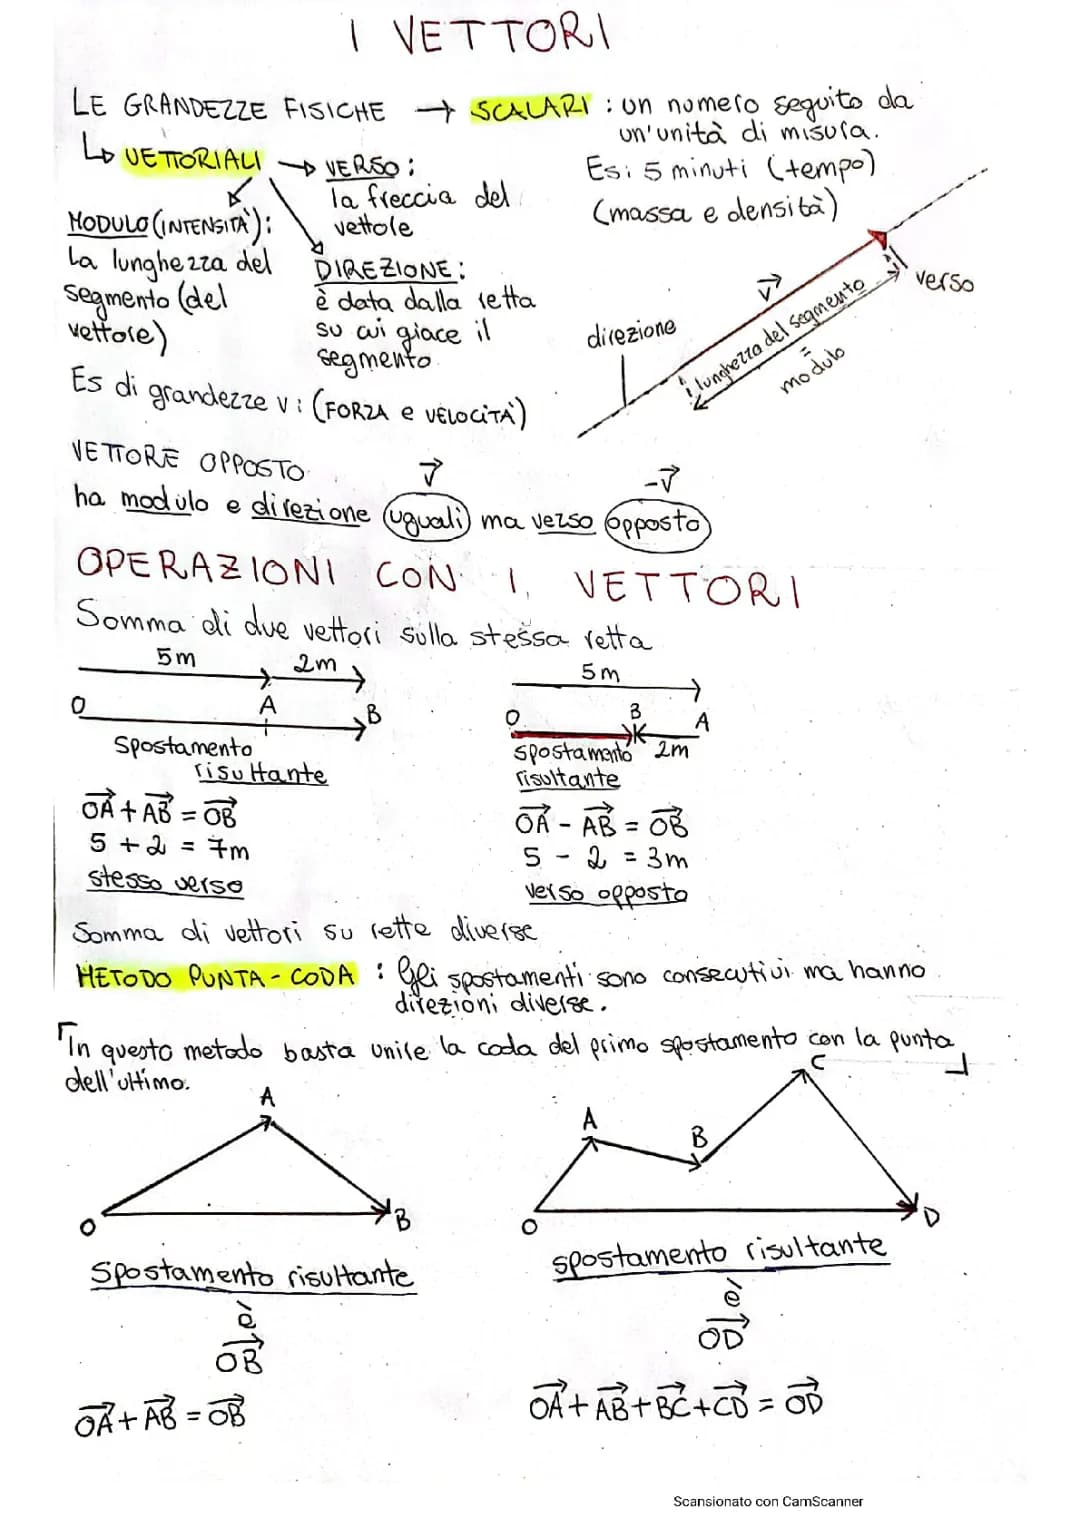 I VETTORI
LE GRANDEZZE FISICHE → SCALARI : un numero seguito da
un'unità di misura.
Es: 5 minuti (tempo)
(massa e densità)
↳ VETTORIALI → VERSO:
la freccia del
vettole
MODULO (INTENSITÀ):
La lunghezza del
segmento (del
vettore)
DIREZIONE:
è data dalla retta
su cui giace il
segmento
direzione
v
lunghezza del segmento
=
modulo
verso
Es di grandezze v: (FORZA e VELOCITÀ)
VETTORE OPPOSTO
v
-v
ha modulo e direzione uguali ma verso opposto
OPERAZIONI CON I VETTORI
Somma di due vettori sulla stessa retta
5m 2m
O A B
Spostamento
risultante
OA + AB = OB
5 + 2 = 7m
stesso verso
5m
O B A
spostamento 2m
risultante
OA - AB = OB
5 - 2 = 3m
verso opposto
Somma di vettori su rette diverse
METODO PUNTA-CODA : Gli spostamenti sono consecutivi ma hanno
direzioni diverse.
In questo metodo basta unire la coda del primo spostamento con la punta
dell'ultimo.
A
O B
Spostamento risultante
è
OB
OA + AB = OB
C
A B
O D
spostamento risultante
è
OD
OA + AB + BC + CD = OD
Scansionato con CamScanner